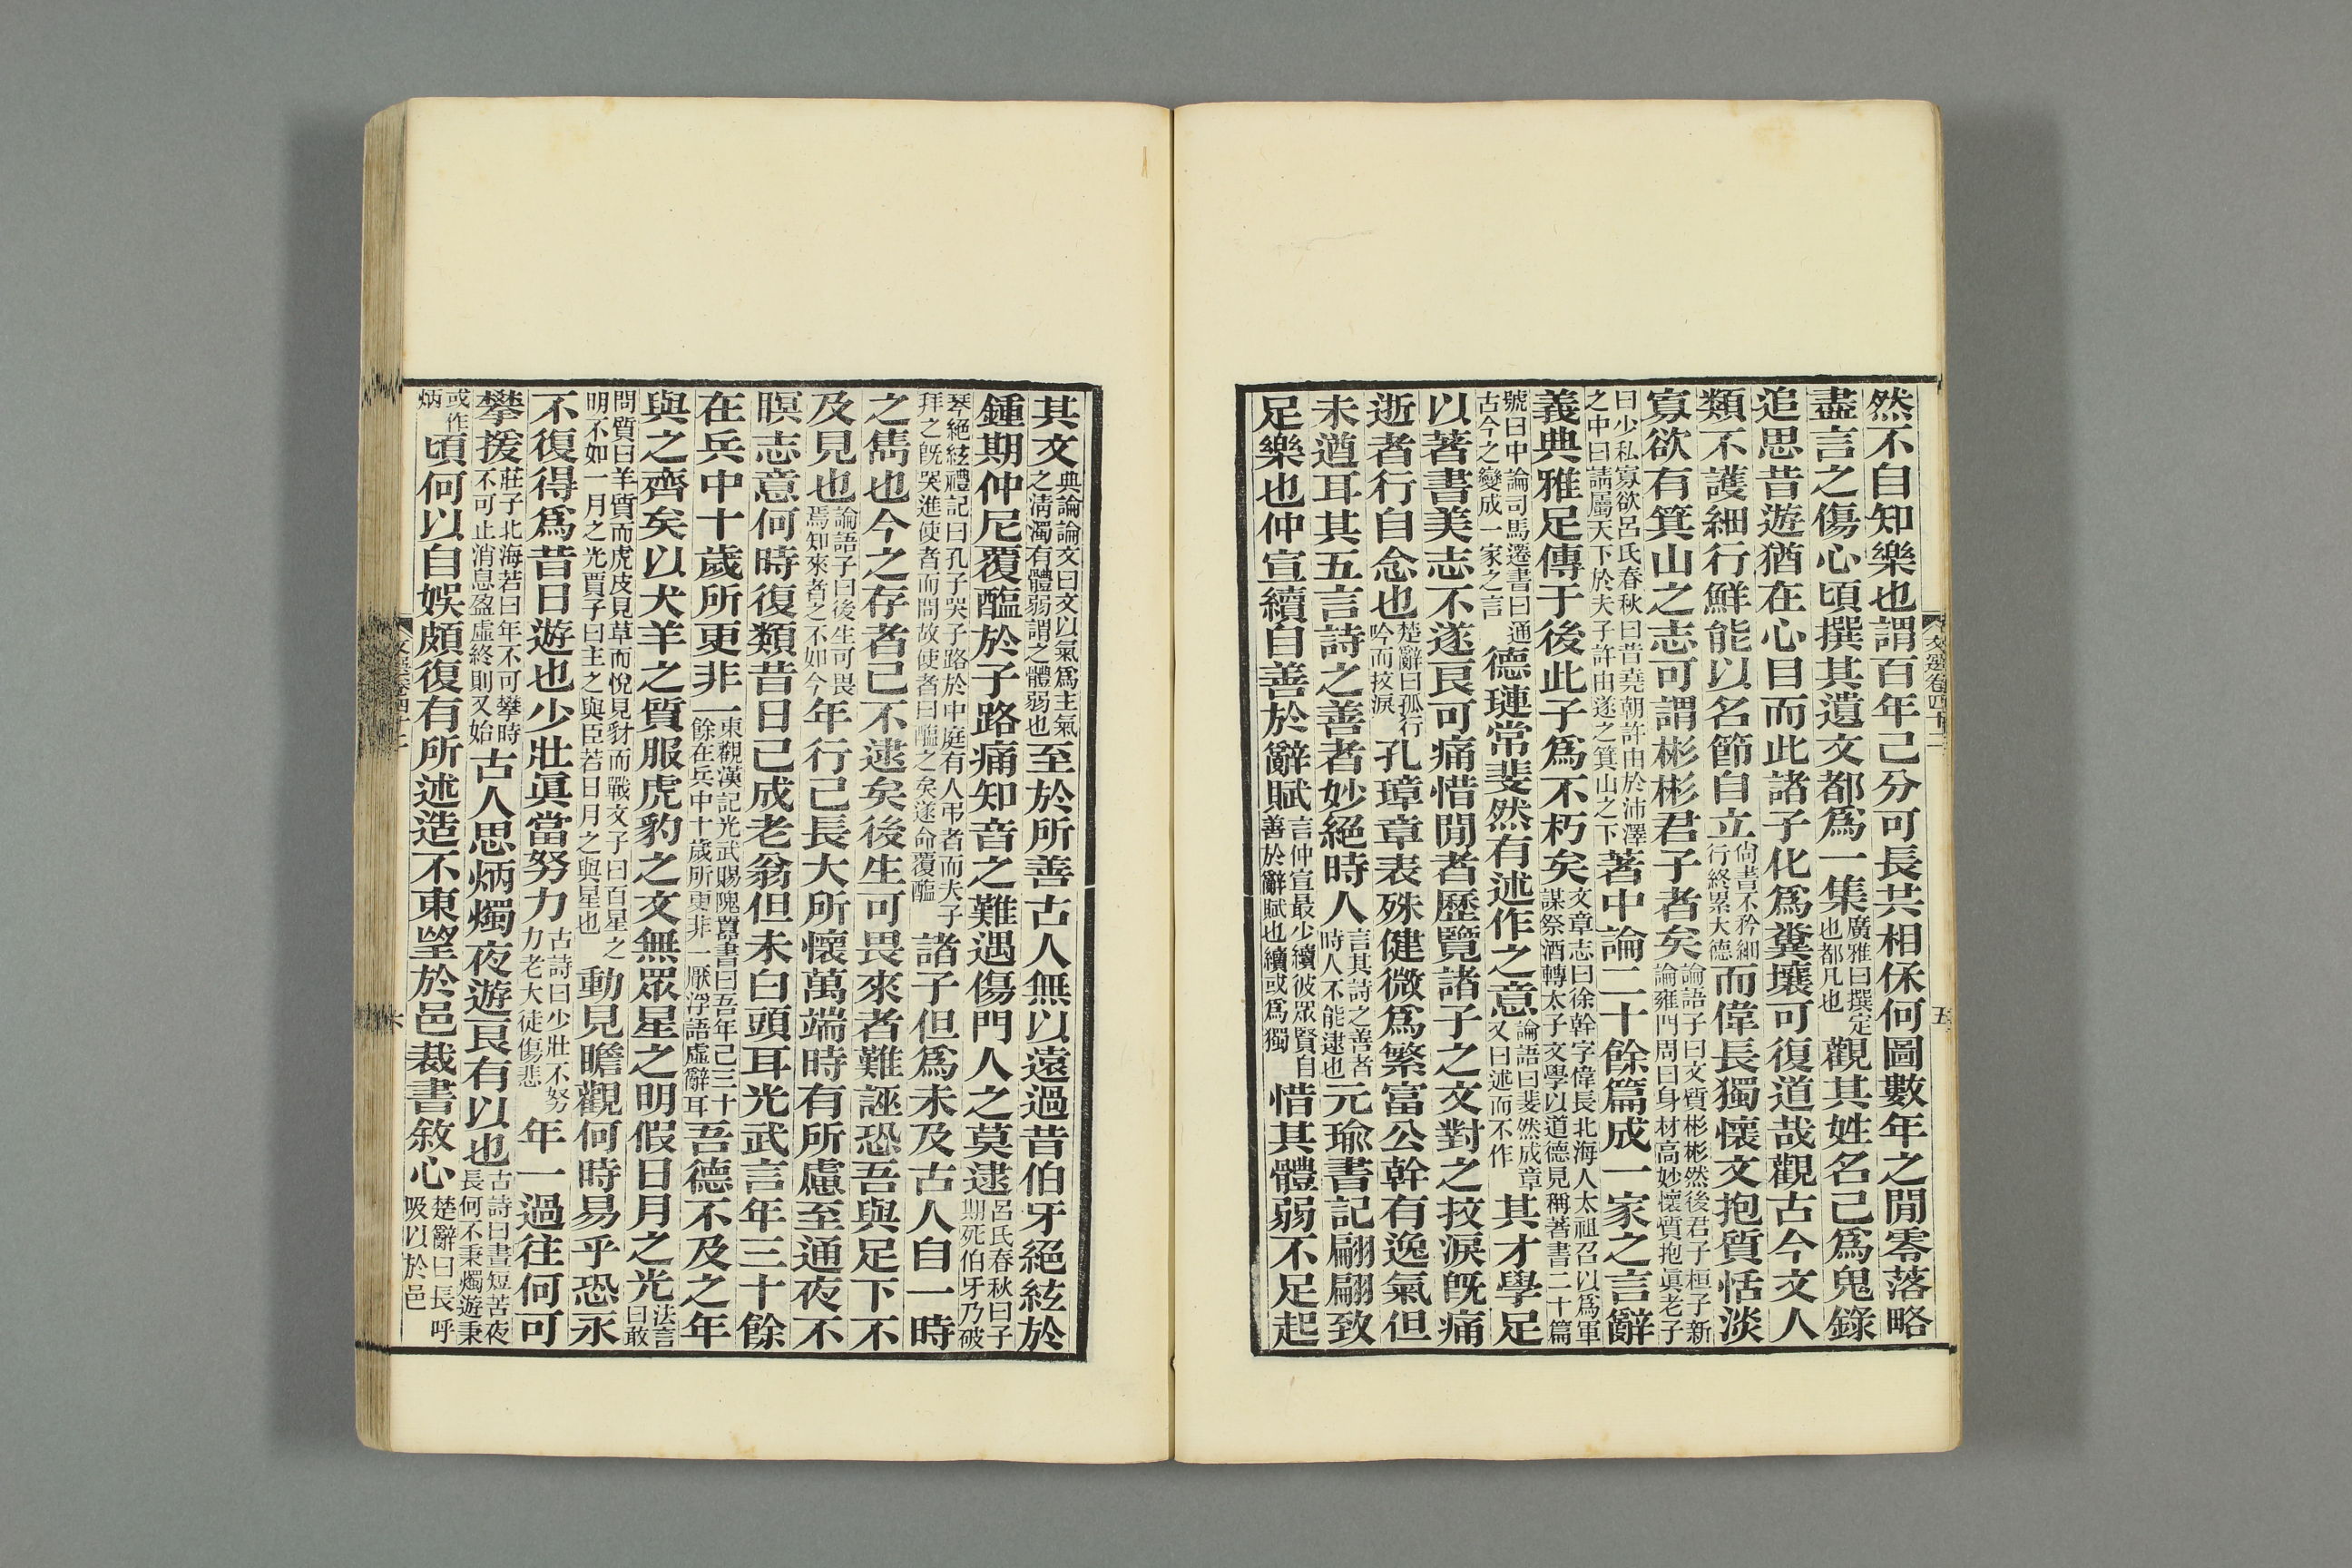 文選卷四十二
五
然不自知樂也謂百年己分可長共相保何圖數年之閒零落略
盡言之傷心頃撰其遺文都爲一集廣雅曰撰定也都凡也觀其姓名已爲鬼錄
追思昔遊猶在心目而此諸子化爲糞壤可復道哉觀古今文人
類不護細行鮮能以名節自立尙書不矜細行終累大德而偉長獨懷文抱質恬淡
寡欲有箕山之志可謂彬彬君子者矣論語子曰文質彬彬然後君子桓子新論雍門周曰身材高妙懷質抱眞老子
曰少私寡欲呂氏春秋曰昔堯朝許由於沛澤之中曰請屬天下於夫子許由遂之箕山之下著中論二十餘篇成一家之言辭
義典雅足傳于後此子爲不朽矣文章志曰徐幹字偉長北海人太祖召以爲軍謀祭酒轉太子文學以道德見稱著書二十篇
號曰中論司馬遷書曰通古今之變成一家之言德璉常斐然有述作之意論語曰斐然成章又曰述而不作其才學足
以著書美志不遂良可痛惜閒者歷覽諸子之文對之抆淚旣痛
逝者行自念也楚辭曰孤行吟而抆淚孔璋章表殊健微爲繁富公幹有逸氣但
未遒耳其五言詩之善者妙絕時人言其詩之善者時人不能逮也元瑜書記翩翩致
足樂也仲宣續自善於辭賦言仲宣最少續彼眾賢自善於辭賦也續或爲獨惜其體弱不足起
其文典論論文曰文以氣爲主氣之淸濁有體弱謂之體弱也至於所善古人無以遠過昔伯牙絕絃於
鍾期仲尼覆醢於子路痛知音之難遇傷門人之莫逮呂氏春秋曰子期死伯牙乃破
琴絕絃禮記曰孔子哭子路於中庭有人弔者而夫子拜之旣哭進使者而問故使者曰醢之矣遂命覆醢諸子但爲未及古人自一時
之雋也今之存者已不逮矣後生可畏來者難誣恐吾與足下不
及見也論語子曰後生可畏焉知來者之不如今年行已長大所懷萬端時有所慮至通夜不
瞑志意何時復類昔日已成老翁但未白頭耳光武言年三十餘
在兵中十歲所更非一東觀漢記光武賜隗囂書曰吾年已三十餘在兵中十歲所更非一厭浮語虛辭耳吾德不及之年
與之齊矣以犬羊之質服虎豹之文無眾星之明假日月之光法言曰敢
問質曰羊質而虎皮見草而悅見豺而戰文子曰百星之明不如一月之光賈子曰主之與臣若日月之與星也動見瞻觀何時易乎恐永
不復得爲昔日遊也少壯眞當努力古詩曰少壯不努力老大徒傷悲年一過往何可
攀援莊子北海若曰年不可攀時不可止消息盈虛終則又始古人思炳燭夜遊良有以也古詩曰晝短苦夜長何不秉燭遊秉
或作炳頃何以自娛頗復有所述造不東望於邑裁書敘心楚辭曰長呼吸以於邑
文選卷四十二
六